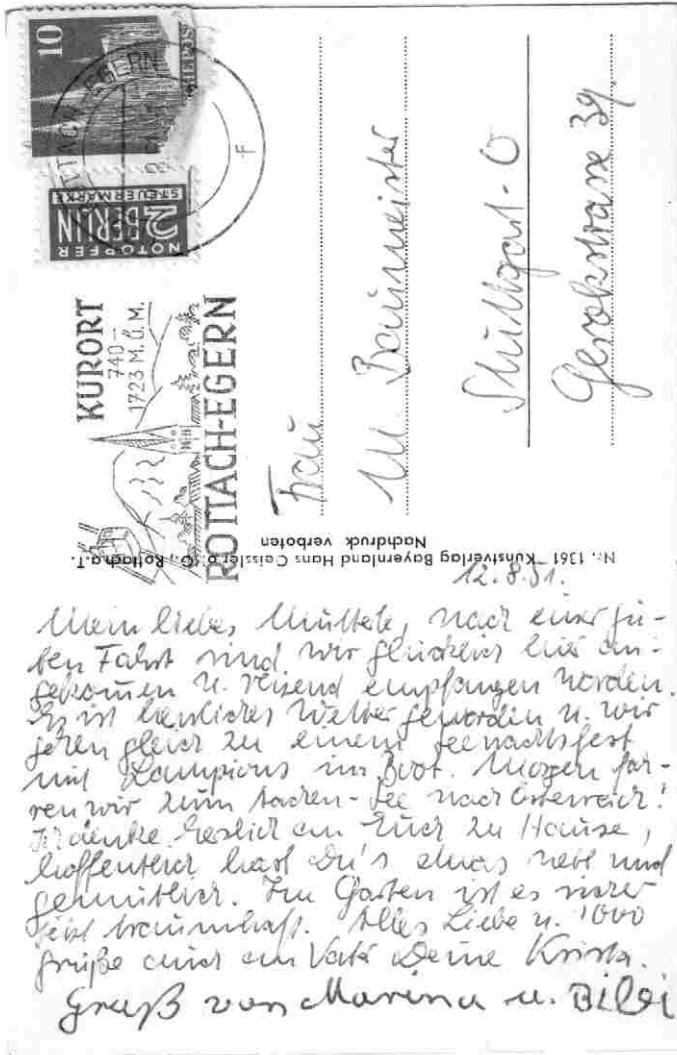 10
NOTOPFER
2 BERLIN
STEUERMARKE
ROTTACH-EGERN
KURORT
740-
1723 M.Ü.M.
ROTTACH-EGERN
Frau
M. Baumeister
Stuttgart-O
Gerokstrasse 39.
Nr. 1361 Kunstverlag Bayernland Hans Geissler o.H.G., Rottach a.T.
Nachdruck verboten
12.8.51.
Mein liebes Mutterle, nach einer gu-
ten Fahrt sind wir glücklich hier an-
gekommen u. reizend empfangen worden.
Es ist herrliches Wetter geworden u. wir
gehen gleich zu einem Seenachtsfest
mit Lampions im Boot. Morgen fah-
ren wir zum Aachen-See nach Österreich!
Ich denke herzlich an Euch zu Hause,
hoffentlich hast Du's etwas nett und
gemütlich. Im Garten ist es sicher
jetzt traumhaft. Alles Liebe u. 1000
Grüße auch an Vati Deine Krista.
Gruß von Marina u. Bibi